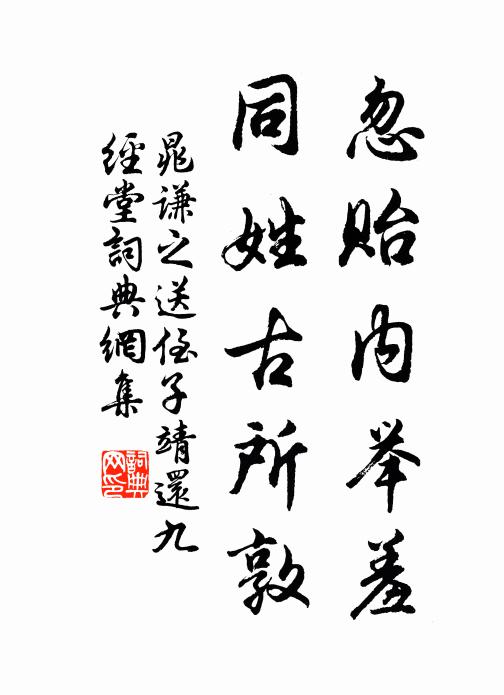 忽贻内举羞
同姓古所敦
晁謙之送侄子靖還九
經堂詞典網集
詞典
网印